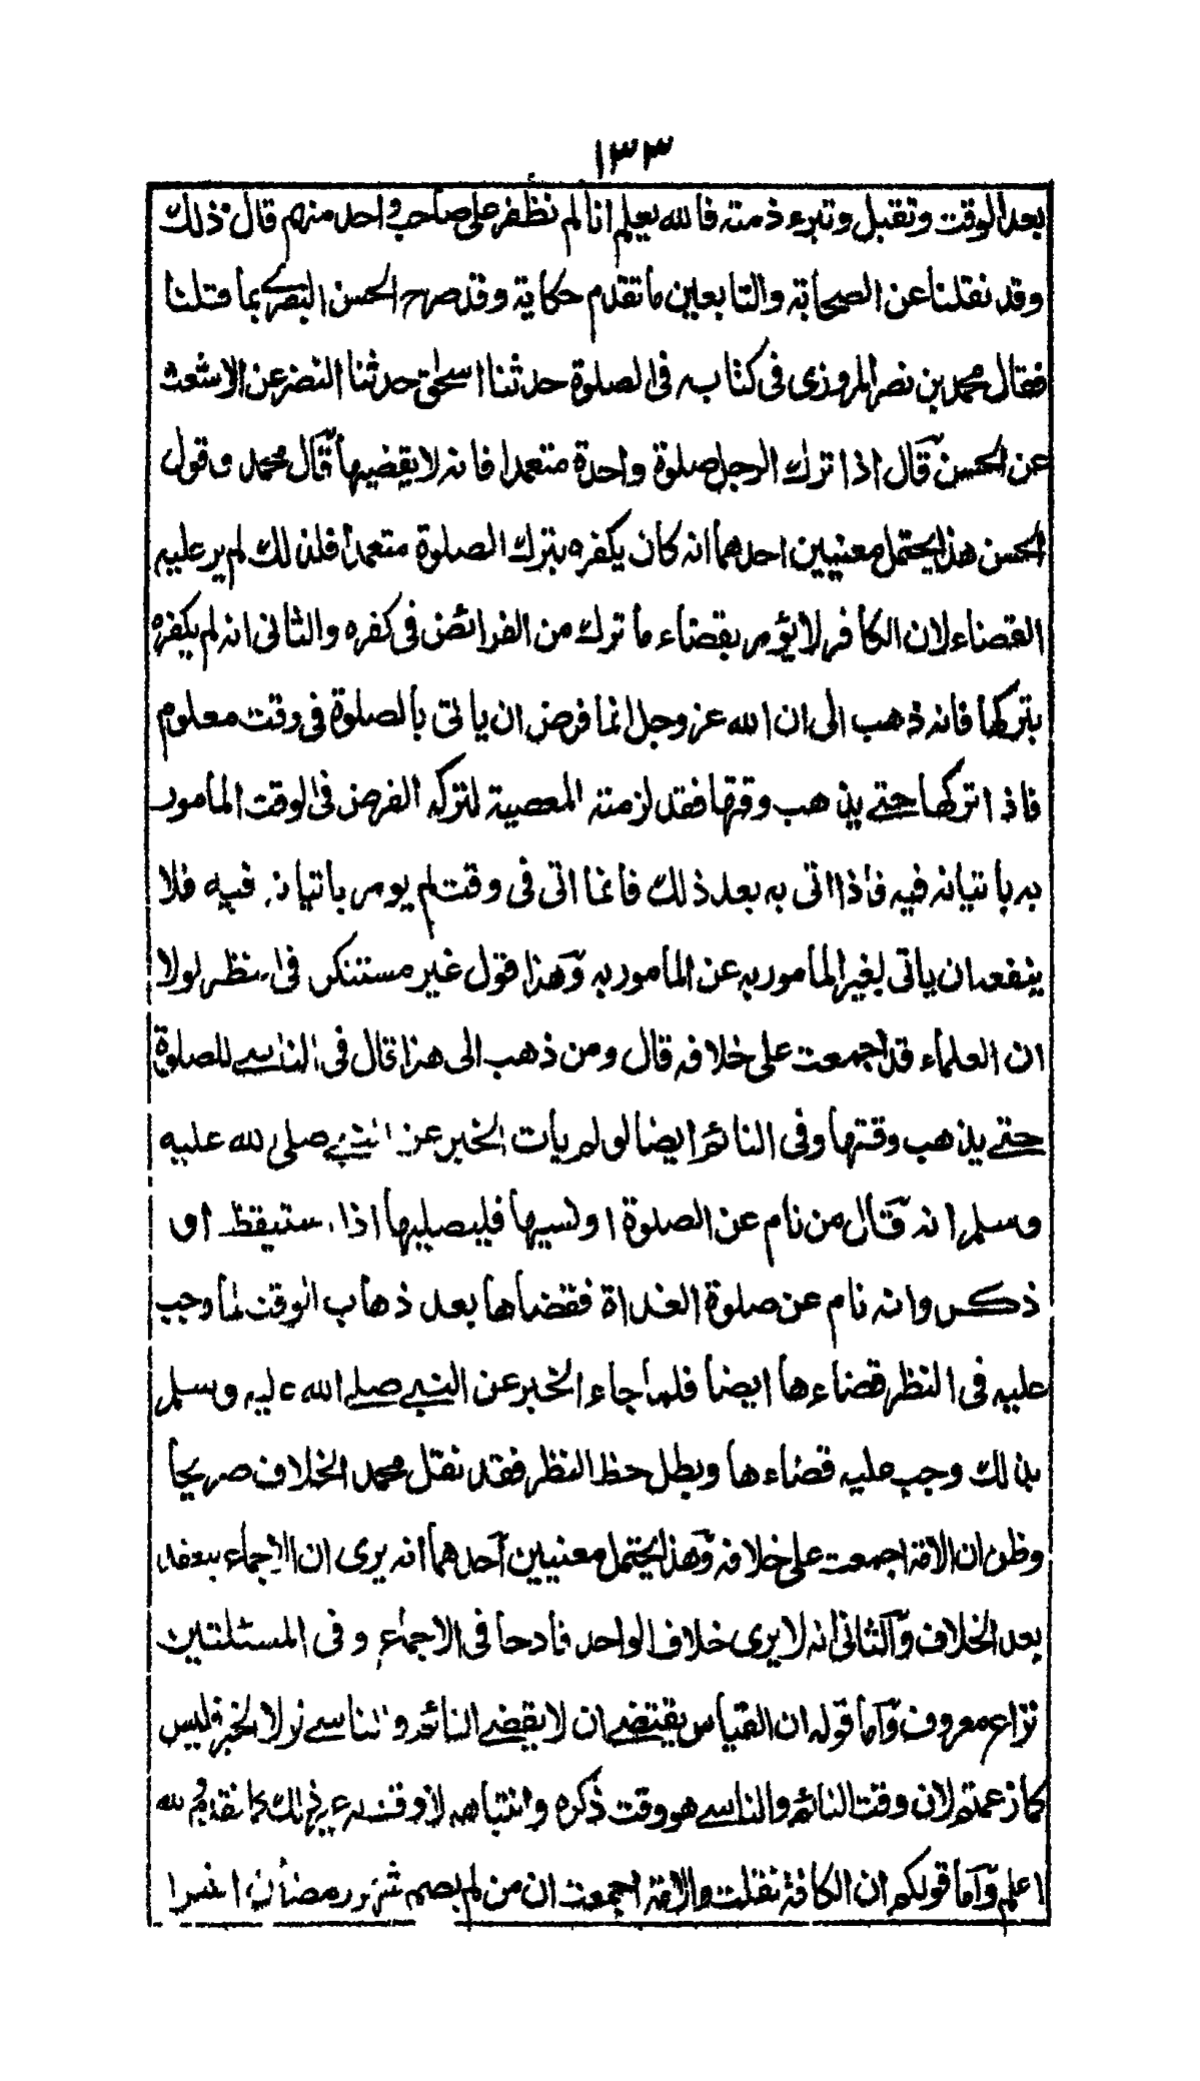 ١٣٣
بعد الوقت وتقبل وتبرء ذمته فالله يعلم انا لم نظفر على صاحب واحد منهم قال ذلك
وقد نقلنا عن الصحابة والتابعين ما تقدم حكاية وقد صرح الحسن البصرى بما قلنا
فقال محمد بن نصر المروذى فى كتابه فى الصلوة حدثنا اسحاق حدثنا النضر عن الاشعث
عن الحسن قال اذا ترك الرجل صلوة واحدة متعمدا فانه لا يقضيها قال محمد وقول
الحسن هذا يحتمل معنيين احدهما انه كان يكفره بترك الصلوة متعمدا فلذلك لم ير عليه
القضاء لان الكافر لا يؤمر بقضاء ما ترك من الفرائض فى كفره والثانى انه لم يكفره
بتركها فانه ذهب الى ان الله عز وجل انما فرض ان ياتى بالصلوة فى وقت معلوم
فاذا تركها حتى يذهب وقتها فقد لزمته المعصية لتركه الفرض فى الوقت المامور
به باتيانه فيه فاذا اتى به بعد ذلك فانما اتى فى وقت لم يومر باتيانه فيه فلا
ينفعه ان ياتى بغير المامور به عن المامور به وهذا قول غير مستنكر فى النظر لولا
ان العلماء قد اجمعت على خلافه قال ومن ذهب الى هذا قال فى الناسى للصلوة
حتى يذهب وقتها وفى النائم ايضا لو لم يات الخبر عن النبى صلى الله عليه
وسلم انه قال من نام عن الصلوة او نسيها فليصليها اذا استيقظ او
ذكر وانه نام عن صلوة الغداة فقضاها بعد ذهاب الوقت لما وجب
عليه فى النظر قضاءها ايضا فلما جاء الخبر عن النبى صلى الله عليه وسلم
بذلك وجب عليه قضاءها وبطل حظ النظر فقد نقل محمد الخلاف صريحا
وظن ان الامة اجمعت على خلافه وهذا يحتمل معنيين احدهما انه يرى ان الاجماع ينعقد
بعد الخلاف والثانى انه لا يرى خلاف الواحد قادحا فى الاجماع وفى المسئلتين
نزاع معروف واما قوله ان القياس يقتضى ان لا يقضى النائم والناسى لولا الخبر فليس
كما زعمتم لان وقت النائم والناسى هو وقت ذكره وانتباهه لا وقت له غير ذلك كما تقدم والله
اعلم واما قولكم ان الكافة نقلت والامة اجمعت ان من لم يصم شهر رمضان اشرا